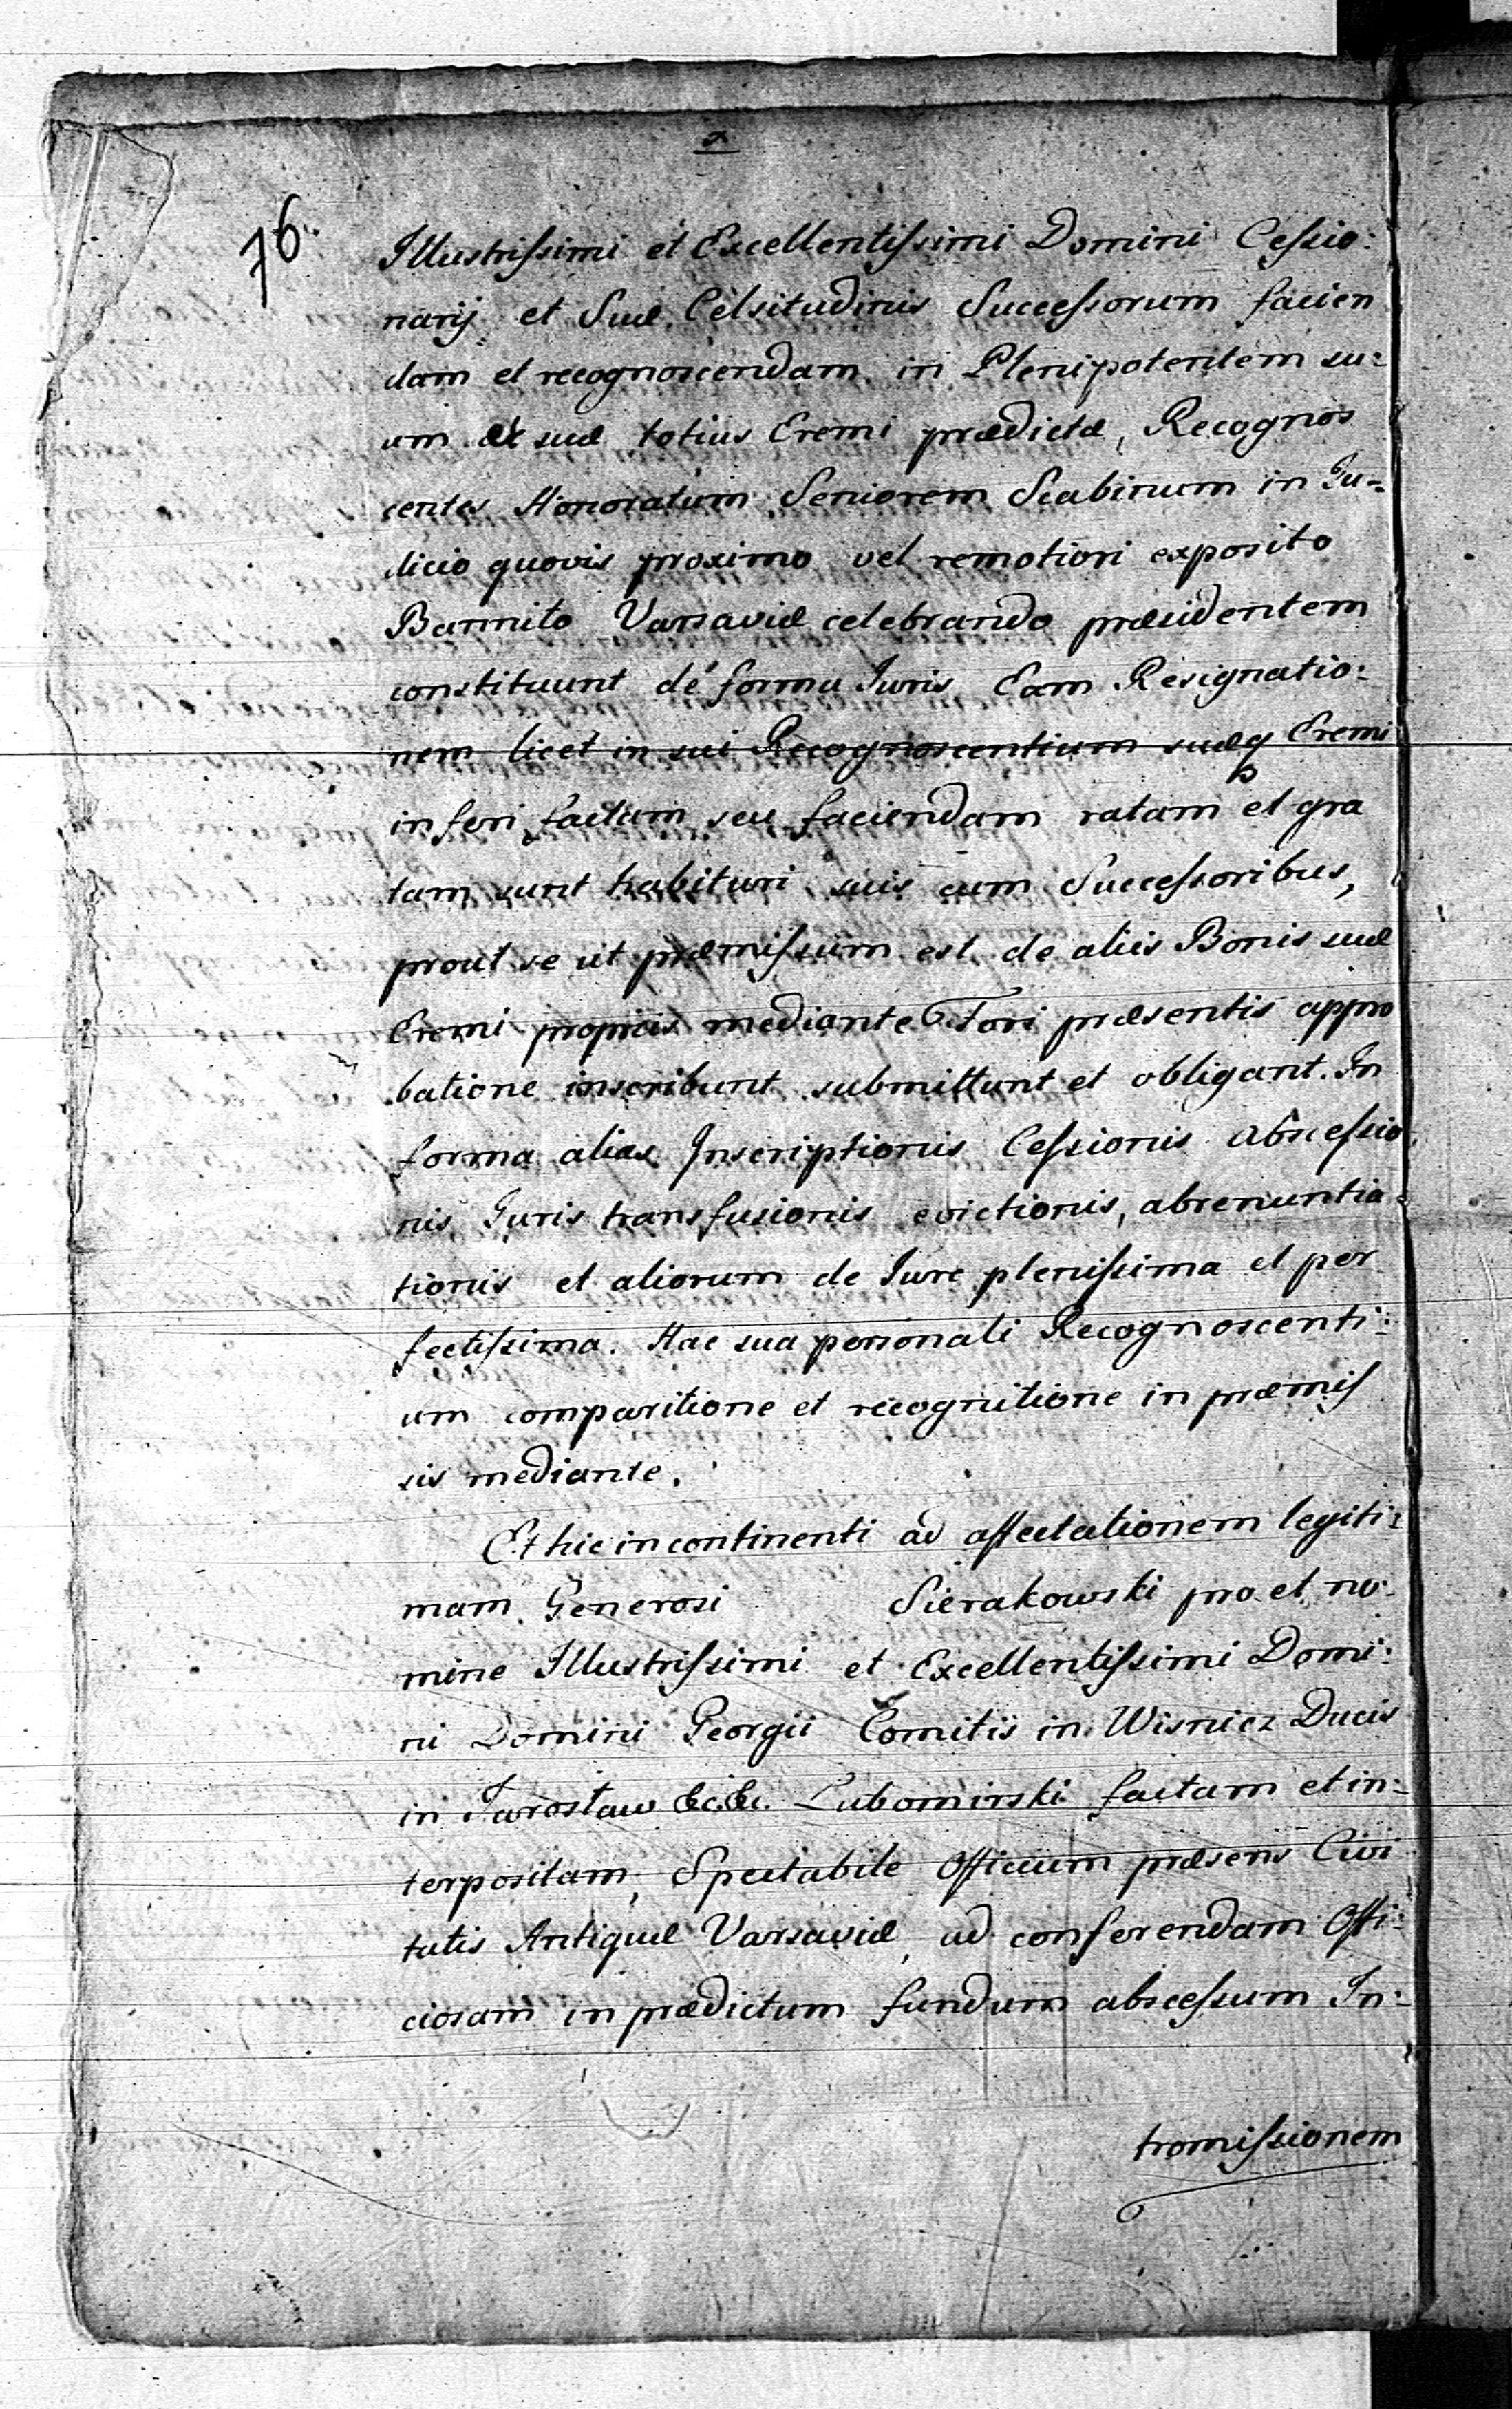 76.
Illustrissimi et Excellentissimi Domini Cessio:
narij et Suæ Celsitudinis Successorum facien
dam et recognoscendam in Plenipotentem su:
um et suæ totius Eremi prædictæ, Recognos
centes Honoratum Seniorem Scabinum in Ju=
dicio quovis proximo vel remotiori exposito
Bannito Varsaviæ celebrando præsidentem
constituunt de forma Juris Eam Resignatio:
nem licet in sui Recognoscentium suæq Eremi
in feri factam seu faciendam ratam et gra
tam sunt habituri suis cum Successoribus,
prout se ut præmissum est de aliis Bonis suæ
Eremi propriis mediante Fori præsentis appro
batione inscribunt submittunt et obligant. In
forma alias Inscriptionis Cessionis Abscessio
nis Juris transfusionis evictionis, abrenuntia=
tionis et aliorum de Jure plenissima et per
fectissima. Hac sua personali Recognoscenti:
um comparitione et recognitione in præmis
sis mediante.
Et hic in continenti ad affectationem legiti:
mam Generosi Sierakowski pro et no:
mine Illustrissimi et Excellentissimi Domi:
ni Domini Georgii Comitis in Wisnicz Ducis
in Jarosław &c. &c. Lubomirski factam et in:
terpositam, Spectabile Officium præsens Civi
tatis Antiquæ Varsaviæ, ad conferendam Offi:
ciosam in prædictum fundum abscessum In:
tromissionem